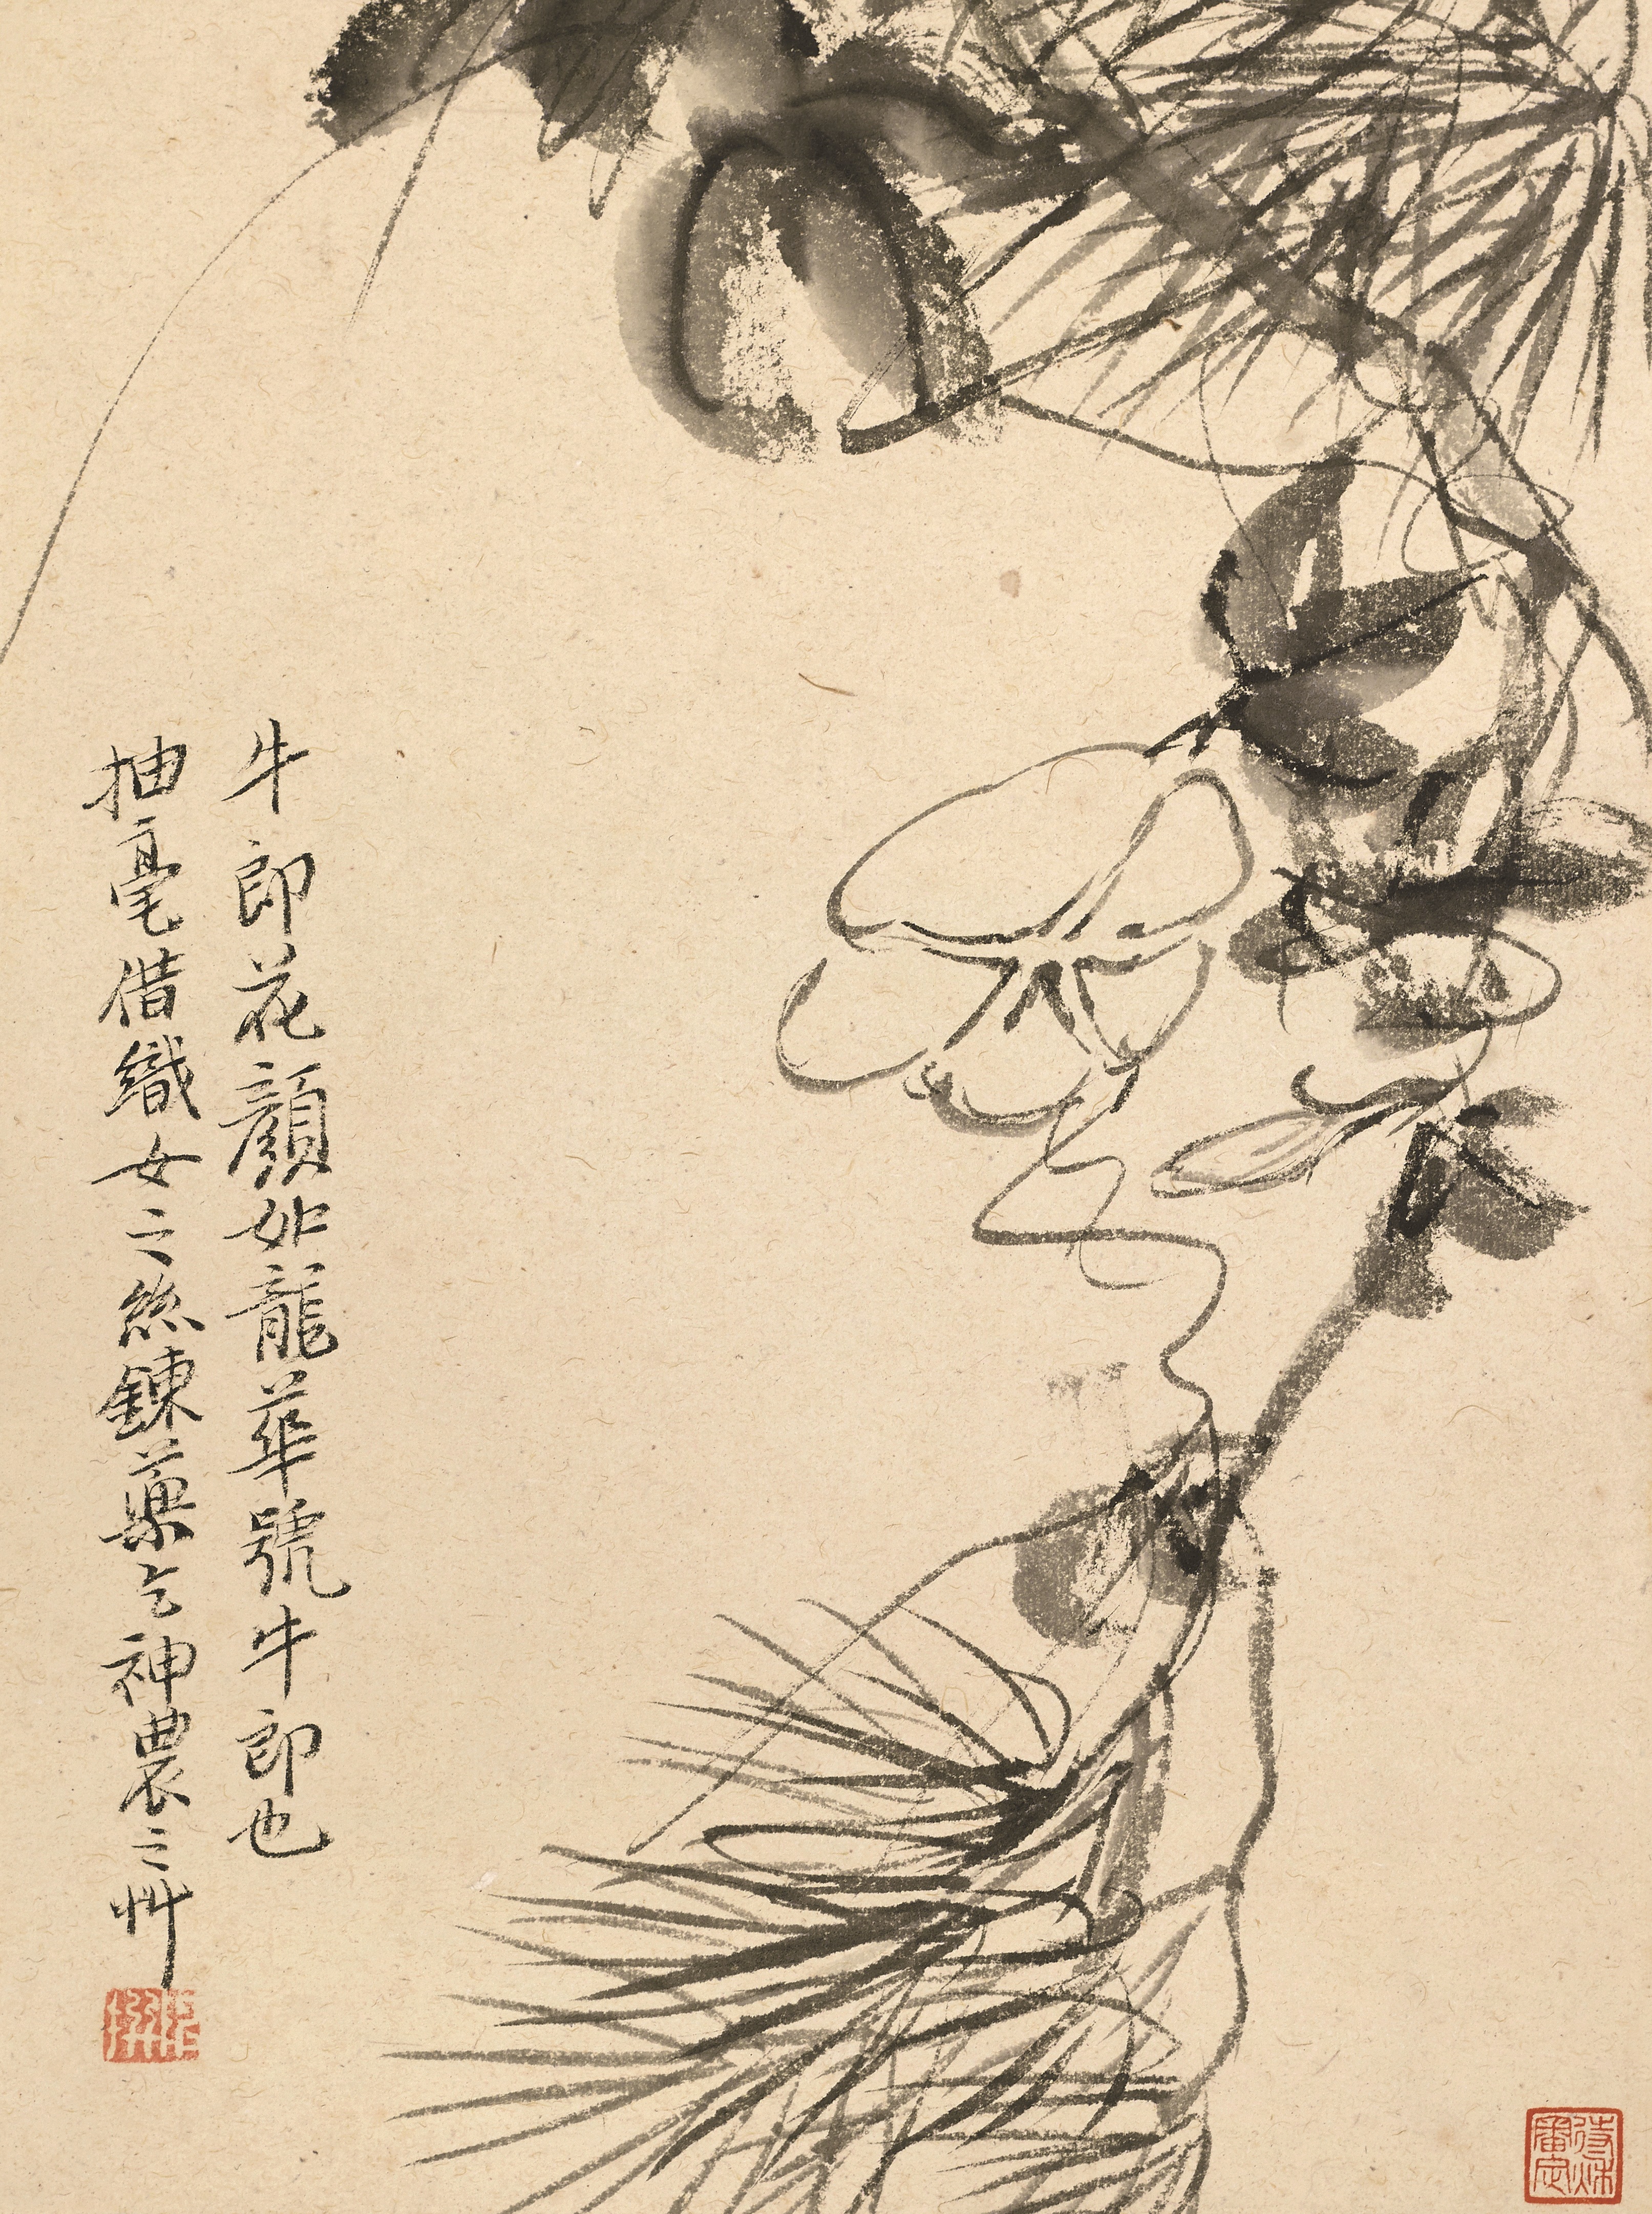 牛郎花顏如龍華號牛郎也
抽毫借織女之絲鍊藥乞神農之艸
待秌審定